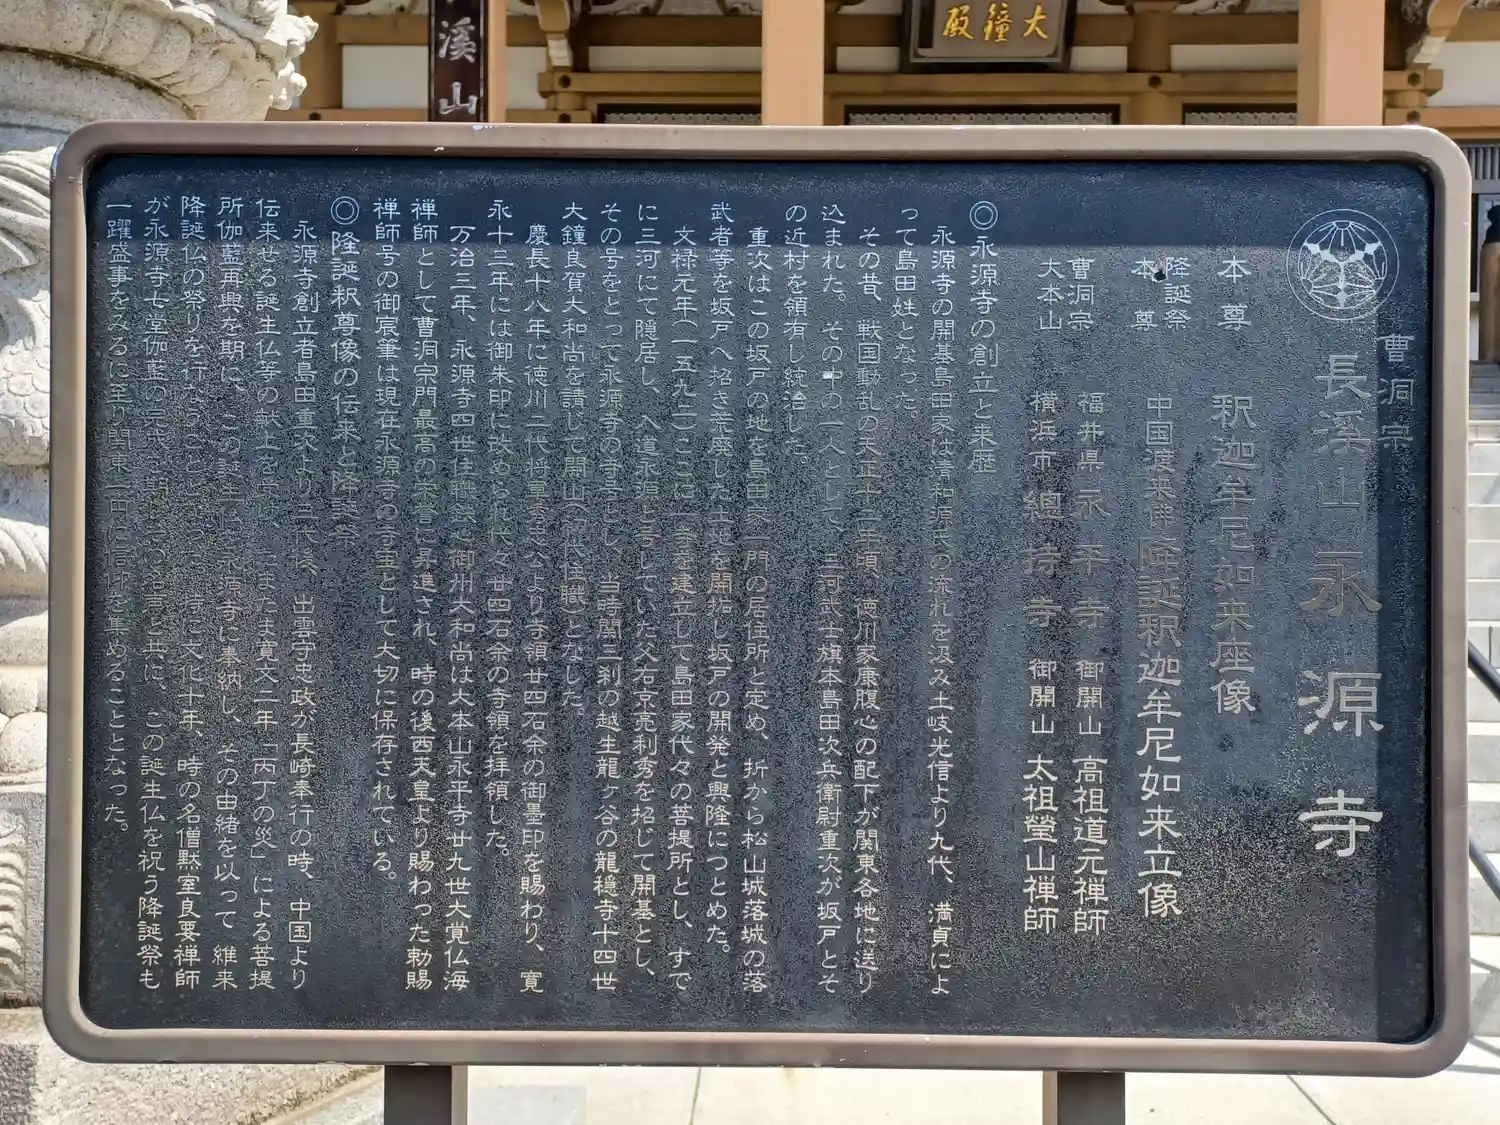 溪山
大鐘殿
曹洞宗
長溪山永源寺
本尊 釈迦牟尼如来座像
降誕祭本尊 中国渡来佛 降誕釈迦牟尼如来立像
曹洞宗大本山 福井県 永平寺 御開山 高祖道元禅師
横浜市 總持寺 御開山 太祖瑩山禅師
◎永源寺の創立と来歴
永源寺の開基島田家は清和源氏の流れを汲み土岐光信より九代、満貞によ
って島田姓となった。
その昔、戦国動乱の天正十二年頃、徳川家康腹心の配下が関東各地に送り
込まれた。その中の一人として、三河武士旗本島田次兵衛尉重次が坂戸とそ
の近村を領有し統治した。
重次はこの坂戸の地を島田家一門の居住所と定め、折から松山城落城の落
武者等を坂戸へ招き荒廃した土地を開拓し坂戸の開発と興隆につとめた。
文禄元年(一五九二)ここに一寺を建立して島田家代々の菩提所とし、すで
に三河にて隠居し、入道永源と号していた父右京亮利秀を招じて開基とし、
その号をとって永源寺の寺号とし、当時関三刹の越生龍ヶ谷の龍穏寺十四世
大鐘良賀大和尚を請じて開山(初代住職)となした。
慶長十八年に徳川二代将軍秀忠公より寺領廿四石余の御墨印を賜わり、寛
永十三年には御朱印に改められ代々廿四石余の寺領を拝領した。
万治三年、永源寺四世住職鉄心御州大和尚は大本山永平寺廿九世大覚仏海
禅師として曹洞宗門最高の栄誉に昇進され、時の後西天皇より賜わった勅賜
禅師号の御宸筆は現在永源寺の寺宝として大切に保存されている。
◎降誕釈尊像の伝来と降誕祭
永源寺創立者島田重次より三代後、出雲守忠政が長崎奉行の時、中国より
伝来せる誕生仏等の献上をうけ、たまたま寛文二年「丙丁の災」による菩提
所伽藍再興を期に、この誕生仏を永源寺に奉納し、その由緒を以って維来
降誕仏の祭りを行なうこととなった。特に文化十年、時の名僧黙室良要禅師
が永源寺七堂伽藍の完成を期しその名声と共に、この誕生仏を祝う降誕祭も
一躍盛事をみるに至り関東一円に信仰を集めることとなった。